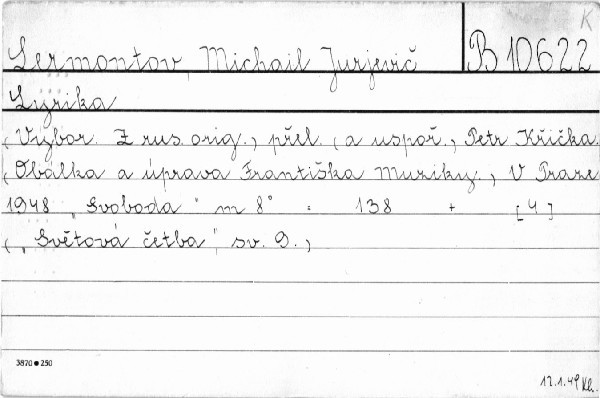 K
Lermontov, Michail Jurjevič B 10622
Lyrika
(Výbor. Z rus. orig., přel. (a uspoř., Petr Křička.
(Obálka a úprava Františka Muziky., V Praze
1948 „Svoboda" m 8° = 138 + [4]
(„Světová četba", sv. 9.,
3870 ● 250
12.1.49 Kh.